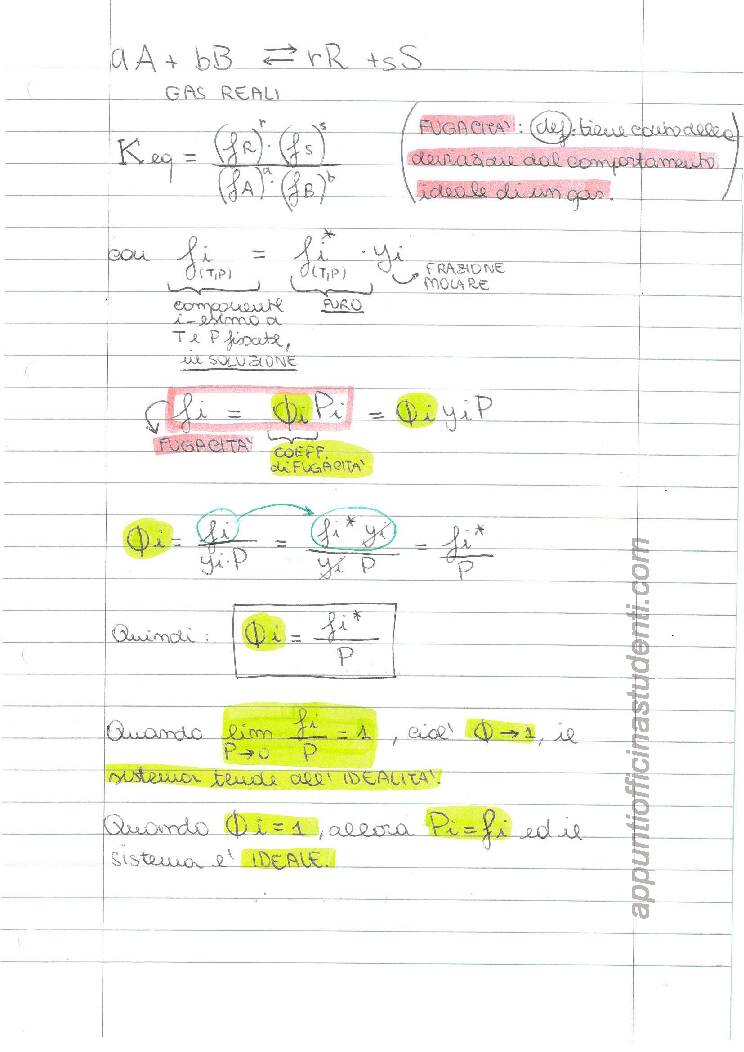 aA + bB ⇌ rR + sS
GAS REALI
Keq = (fR)^r · (fS)^s / (fA)^a · (fB)^b
(FUGACITA': def: tiene conto della
deviazione dal comportamento
ideale di un gas.)
con fi (T,P) = fi* (T,P) · yi
FRAZIONE
MOLARE
componente
i-esimo a
T e P fissate,
in SOLUZIONE
PURO
fi = ϕi Pi = ϕi yi P
FUGACITA'
COEFF.
di FUGACITA'
ϕi = fi / yi·P = fi* yi / yi P = fi* / P
Quindi: ϕi = fi* / P
Quando lim P→0 fi / P = 1, cioe' ϕ→1, il
sistema tende all' IDEALITA'.
Quando ϕi = 1, allora Pi = fi ed il
sistema e' IDEALE.
appuntiofficinastudenti.com